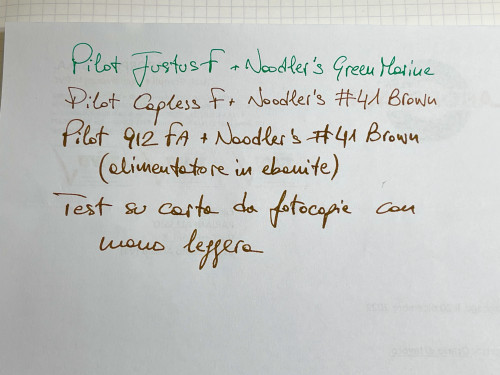 Pilot Justus F + Noodler's Green Marine
Pilot Capless F + Noodler's #41 Brown
Pilot 912 FA + Noodler's #41 Brown
(alimentatore in ebanite)
Test su carta da fotocopie con
mano leggera